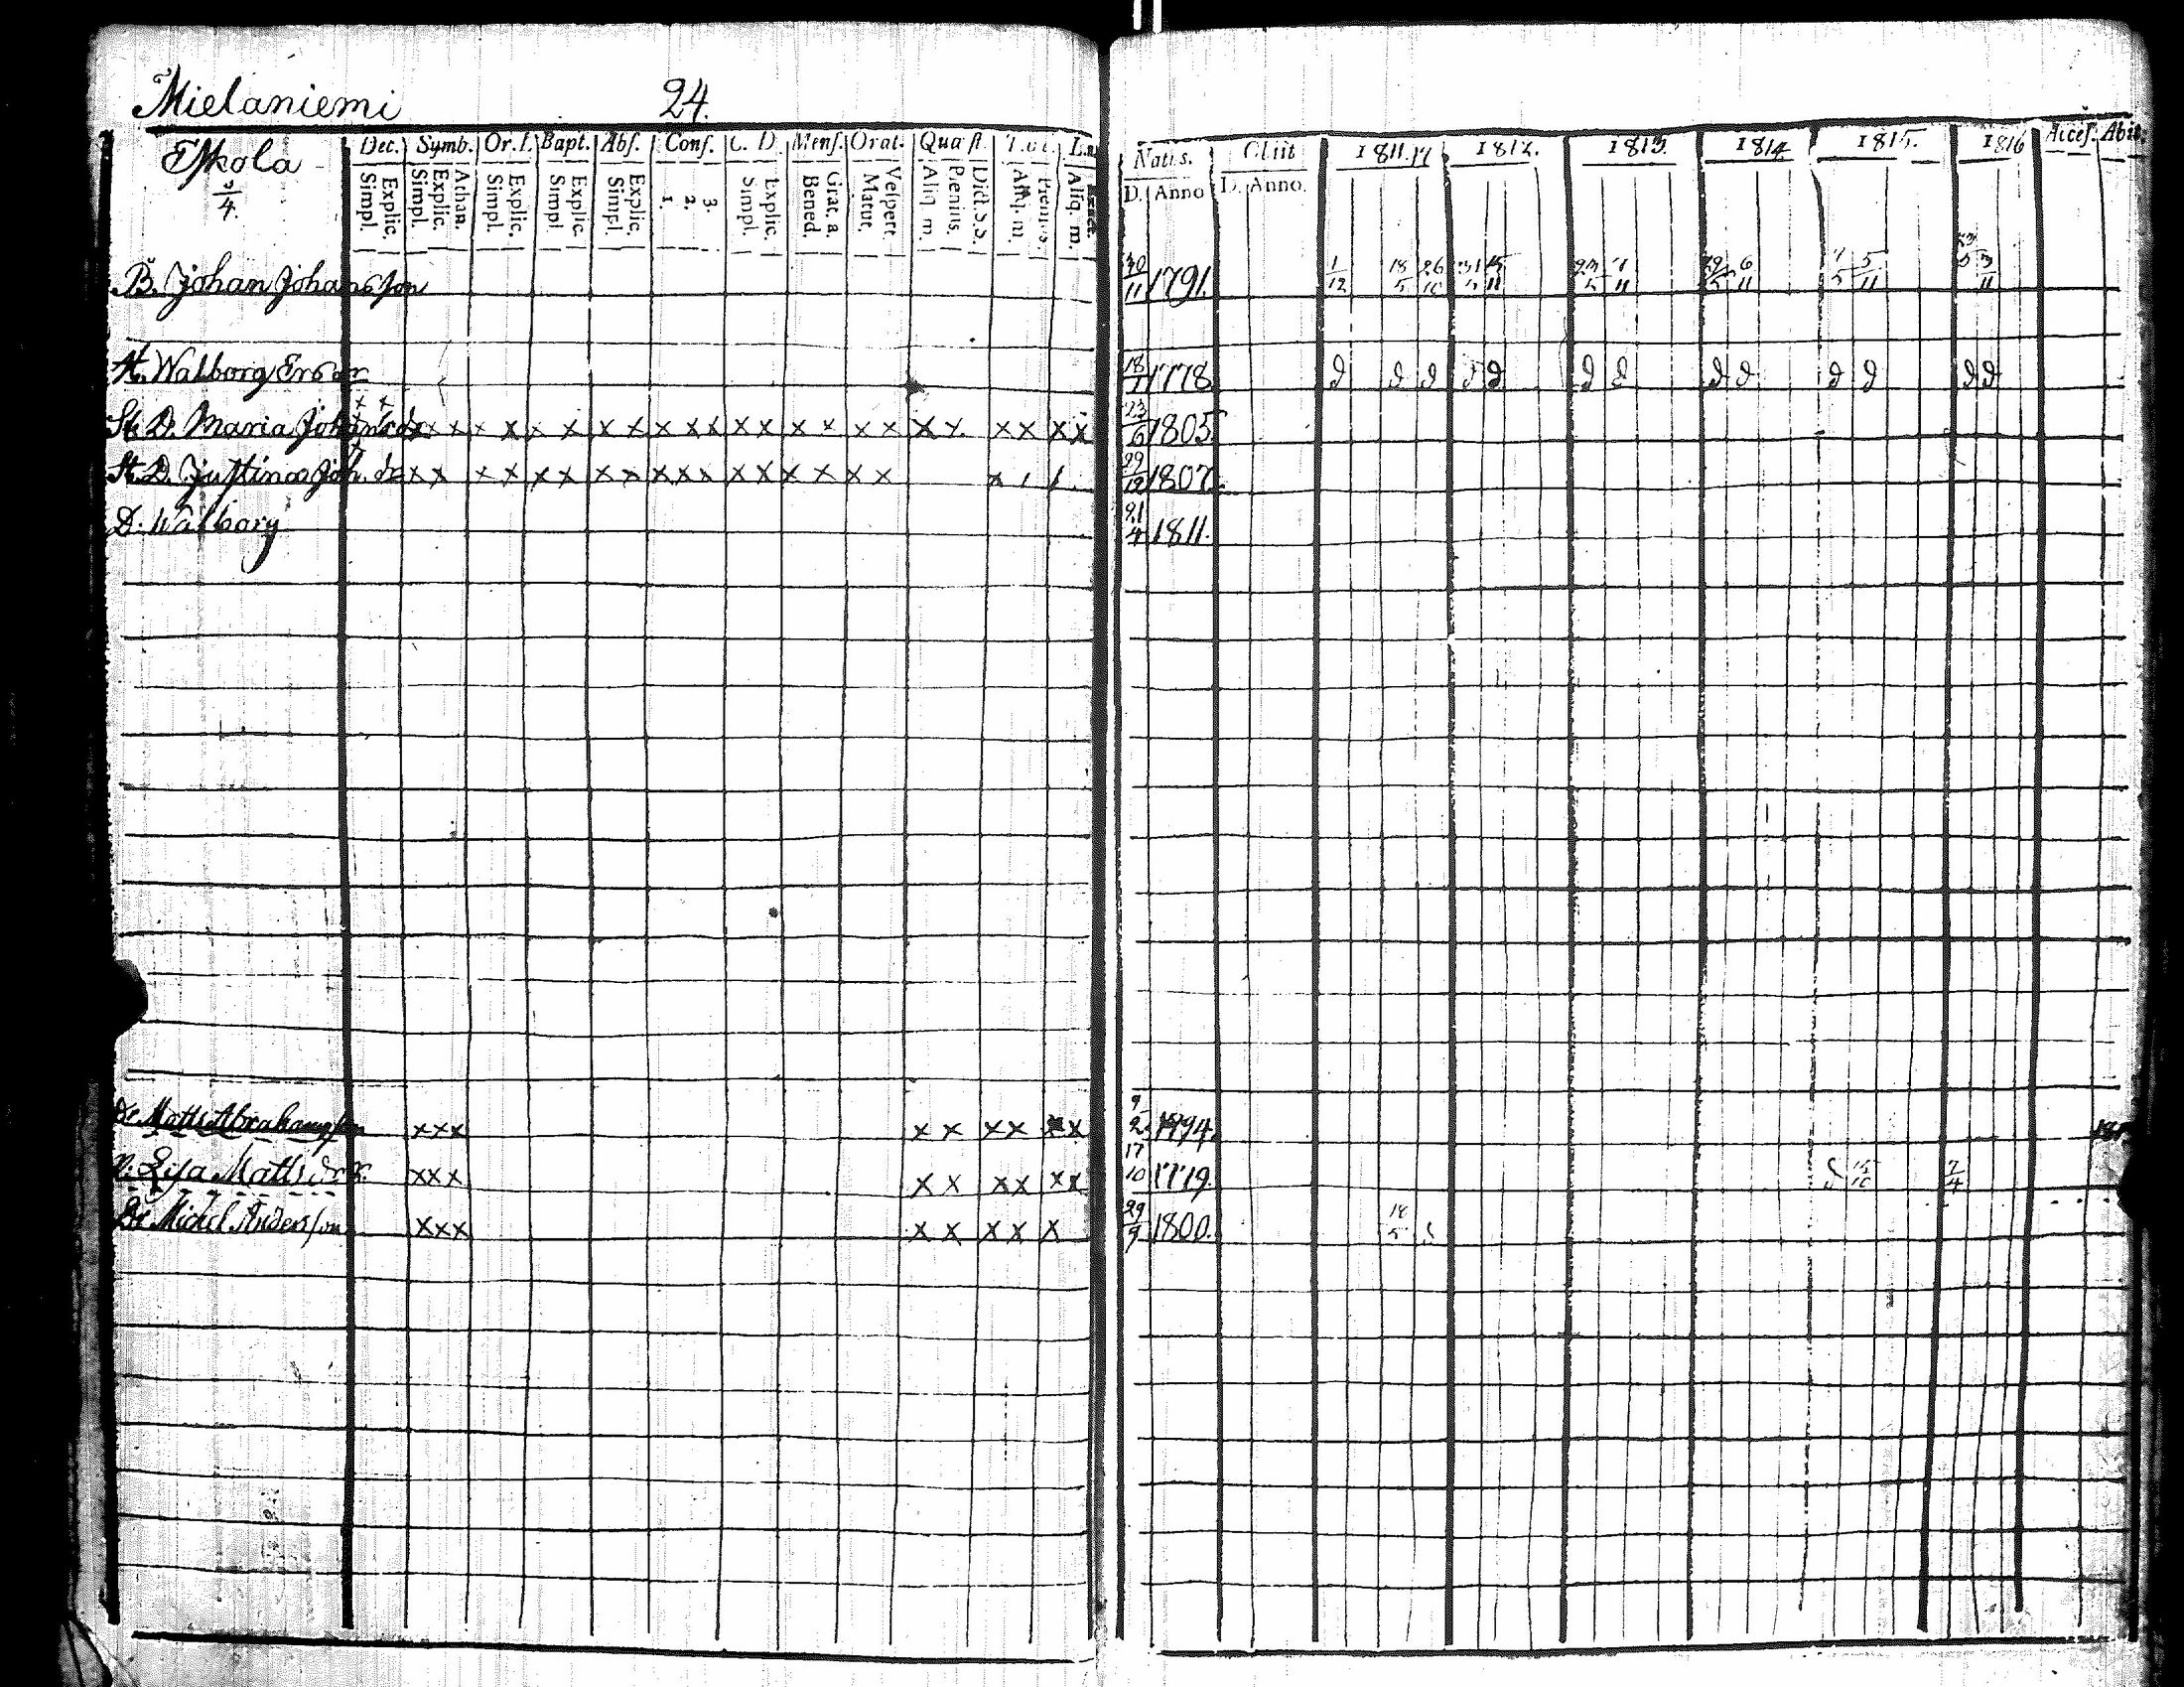 Mielaniemi 24.
Eskola
3/4.
Dec. Symb. Or. D. Bapt. Abs. Conf. C. D. Mens. Orat. Quæst.
Simpl. Explic. Simpl. Explic. Athan. Simpl. Explic. Simpl. Explic. Simpl. Explic. 1. 2. 3. Simpl. Explic. Bened. Grat. a. Matut. Vespert. Aliq. m. Plenius. Dict. S.S. Aliq. m. Plenius. Aliq. m.
Natus. Obiit 1811. 1812. 1813. 1814. 1815. 1816 Acces. Abit.
D. Anno D. Anno.
B. Johan Johansson 30/11 1791. 1/12 18/5 26/10 31/5 15/11 23/5 7/11 29/5 6/11 7/5 5/11 3/11
H. Walborg Ersdr 18/1 1778 D D D D D D D D D D D D D
St. D. Maria Johansdr x x x x x x x x x x x x x x x x x x x x x x x x x 23/6 1805
St. D. Justina Joh. dr x x x x x x x x x x x x x x x x x x x 29/12 1807.
D. Walborg 21/4 1811.
Dr Matts Abrahamsson x x x x x x x x x 9/2 1794.
P. Lisa Mattsdr x x x x x x x x x 17/10 1779. 15/10 7/4
Dr Michel Andersson x x x x x x x x 29/9 1800. 18/5